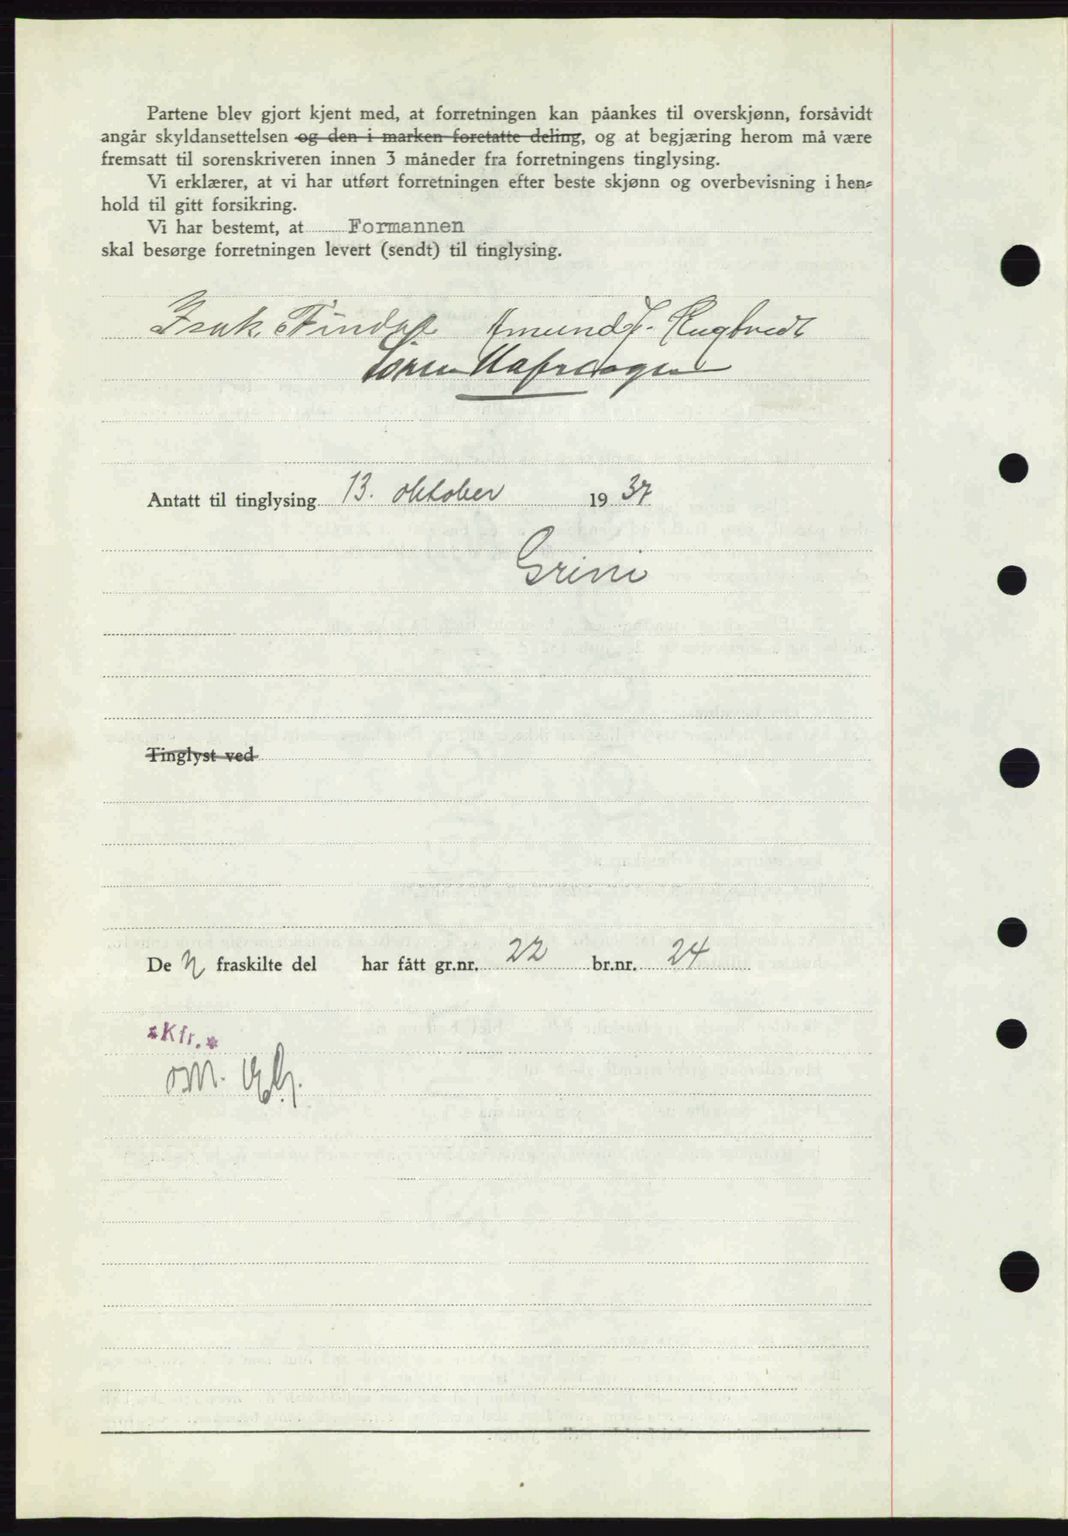 Partene blev gjort kjent med, at forretningen kan påankes til overskjønn, forsåvidt
angår skyldansettelsen og den i marken foretatte deling, og at begjæring herom må være
fremsatt til sorenskriveren innen 3 måneder fra forretningens tinglysing.
Vi erklærer, at vi har utført forretningen efter beste skjønn og overbevisning i hen-
hold til gitt forsikring.
Vi har bestemt, at Formannen
skal besørge forretningen levert (sendt) til tinglysing.
Isak Findal Amund J. Rugtvedt
Søren
Antatt til tinglysing 13. oktober 1937
Grini
Tinglyst ved
De n fraskilte del har fått gr.nr. 22 br.nr. 24
*Kfr.*